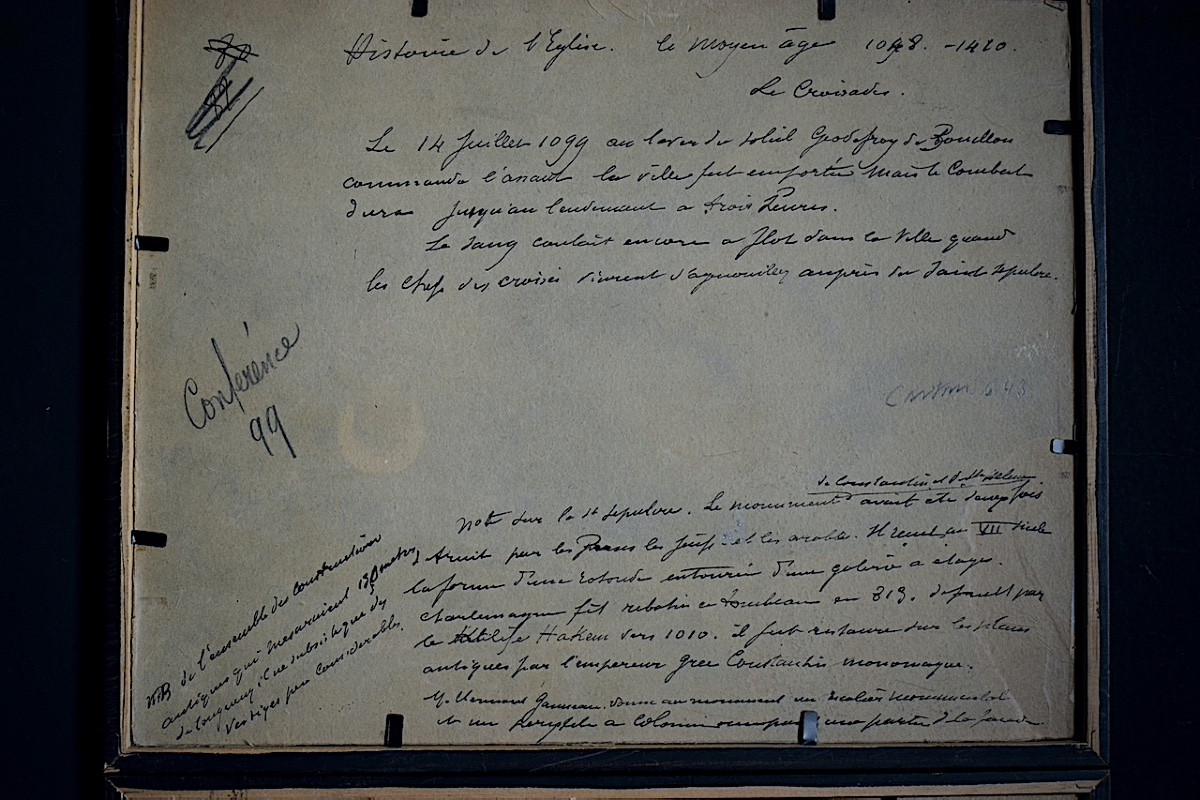 Histoire de l'Eglise. le Moyen âge 1048. -1420.
Le Croisades.
Le 14 Juillet 1099 au lever du soleil Godefroy de Bouillon
commanda l'assaut la ville fut emportée mais le combat
dura jusqu'au lendemain a trois heures.
Le sang coulait encore a flot dans la ville quand
les chefs des croisés vinrent s'agenouiller auprès du Saint Sepulcre.
Conférence
99
de Constantin et de Ste Helene
Note sur le St Sepulcre. Le monument avait été deux fois
détruit par les Perses les Juifs et les arabes. Il recut au VII siecle
la forme d'une rotonde entourée d'une galerie à étages.
Charlemagne fit rebatir ce tombeau en 813. depouillé par
le Khalife Hakem vers 1010. il fut restauré sur les plans
antiques par l'empereur grec Constantin monomaque.
M. Clermont Ganneau donne au monument un escalier monumental
et un peryptile a colonne une partie de la facade.
NB de l'ensemble des constructions
antiques qui mesuraient 130 metres
de longueur il ne subsiste que des
vestiges peu considerables.